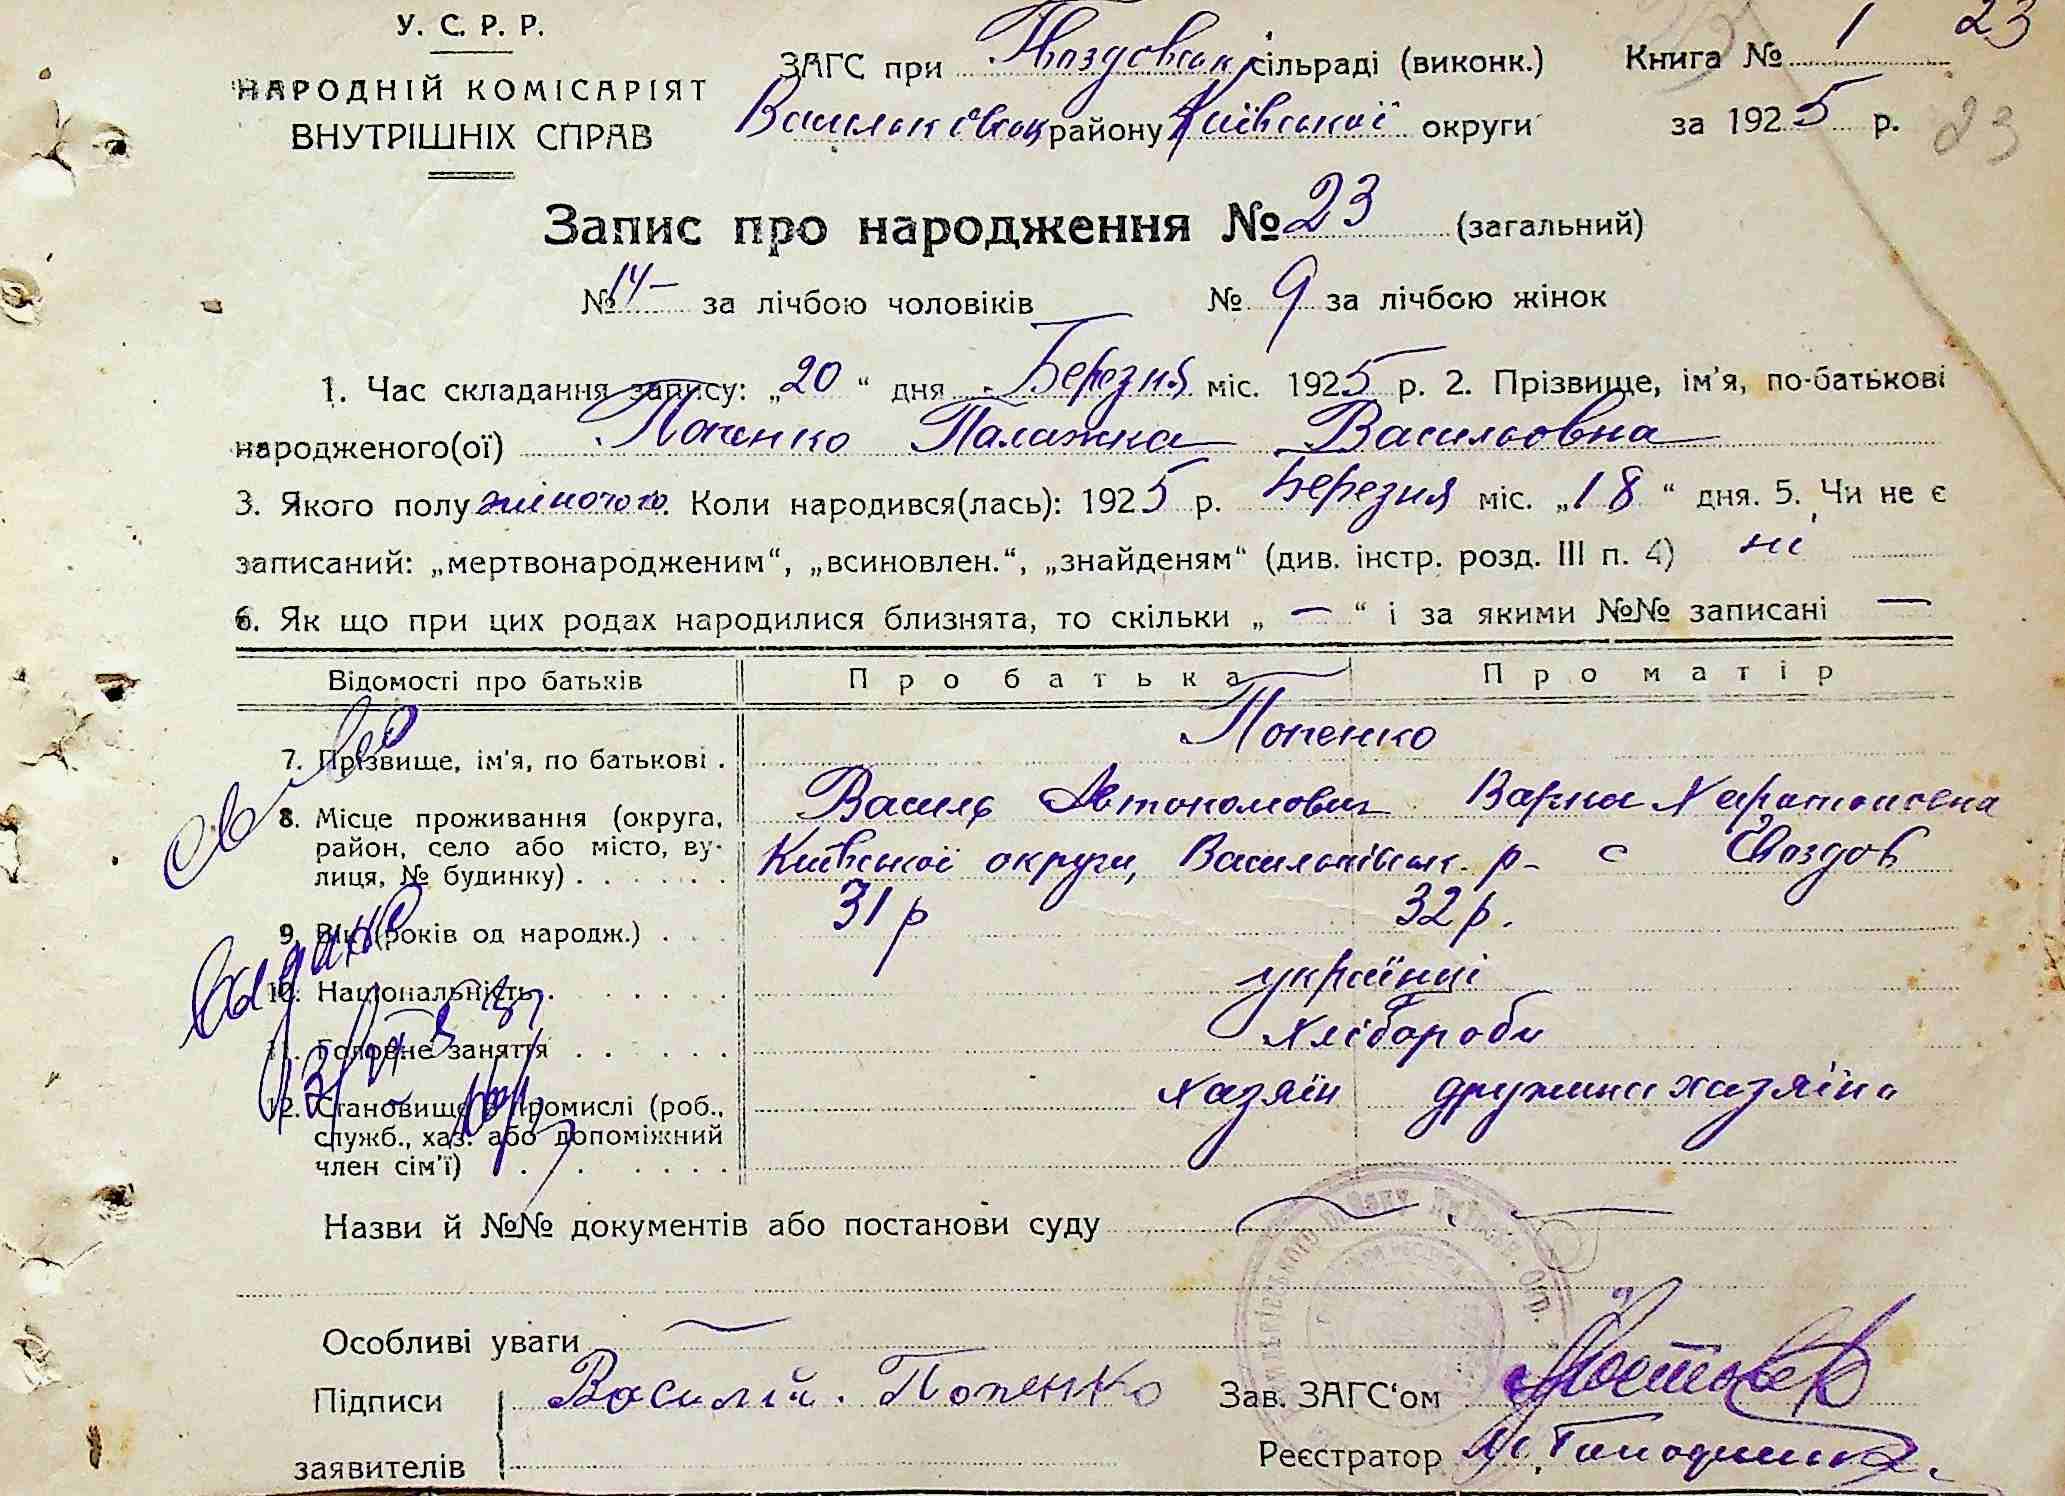 У. С. Р. Р.
НАРОДНІЙ КОМІСАРІЯТ
ВНУТРІШНІХ СПРАВ
ЗАГС при Гвоздовськ сільраді (виконк.) Книга № 1 23
Васильківськ району Київської округи за 1925 р. 23
Запис про народження № 23 (загальний)
№ 14 – за лічбою чоловіків № 9 за лічбою жінок
1. Час складання запису: „20“ дня Березня міс. 1925 р. 2. Прізвище, ім'я, по-батькові
народженого(ої) Попенко Палажка Васильовна
3. Якого полу жіночого. Коли народився(лась): 1925 р. Березня міс. „18“ дня. 5. Чи не є
записаний: „мертвонародженим“, „всиновлен.“, „знайденям“ (див. інстр. розд. III п. 4) ні
6. Як що при цих родах народилися близнята, то скільки „ — “ і за якими №№ записані —
Відомості про батьків Про батька Про матір
Попенко
7. Прізвище, ім'я, по батькові .
Василь Автономович Варка Харитоновна
8. Місце проживання (округа,
район, село або місто, ву-
лиця, № будинку) . . . . . . Київської округи, Васильківськ. р – с Гвоздов
31 р 32 р.
9. Вік (років од народж.) . . .
українці
10. Національність . . . . . . .
хлібороби
11. Головне заняття . . . . . .
хазяїн дружина хазяїна
12. Становище в промислі (роб.,
служб., хаз. або допоміжний
член сім'ї) . . . . . . . .
Назви й №№ документів або постанови суду
Особливі уваги
Підписи Василій. Попенко Зав. ЗАГС'ом
заявителів Реєстратор